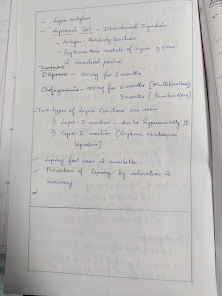 - Lepra Antigen
- Lepromin Test - Intradermal Injection
- Antigen - Antibody Reaction
- Erythematous nodule of 5mm
is considered positive
Treatment
Dapsone - 100mg for 6 months
Clofazimine - 300mg for 12 months [Multibacillary]
6 months [Paucibacillary]
- Two types of Lepra Reactions are seen
1) Lepra-I reaction - due to Hypersensitivity IV
2) Lepra-II reaction [Erythema Nodosum
Leprosum]
✓ Leprosy foot wear is available
✓ Prevention of leprosy by education is
necessary